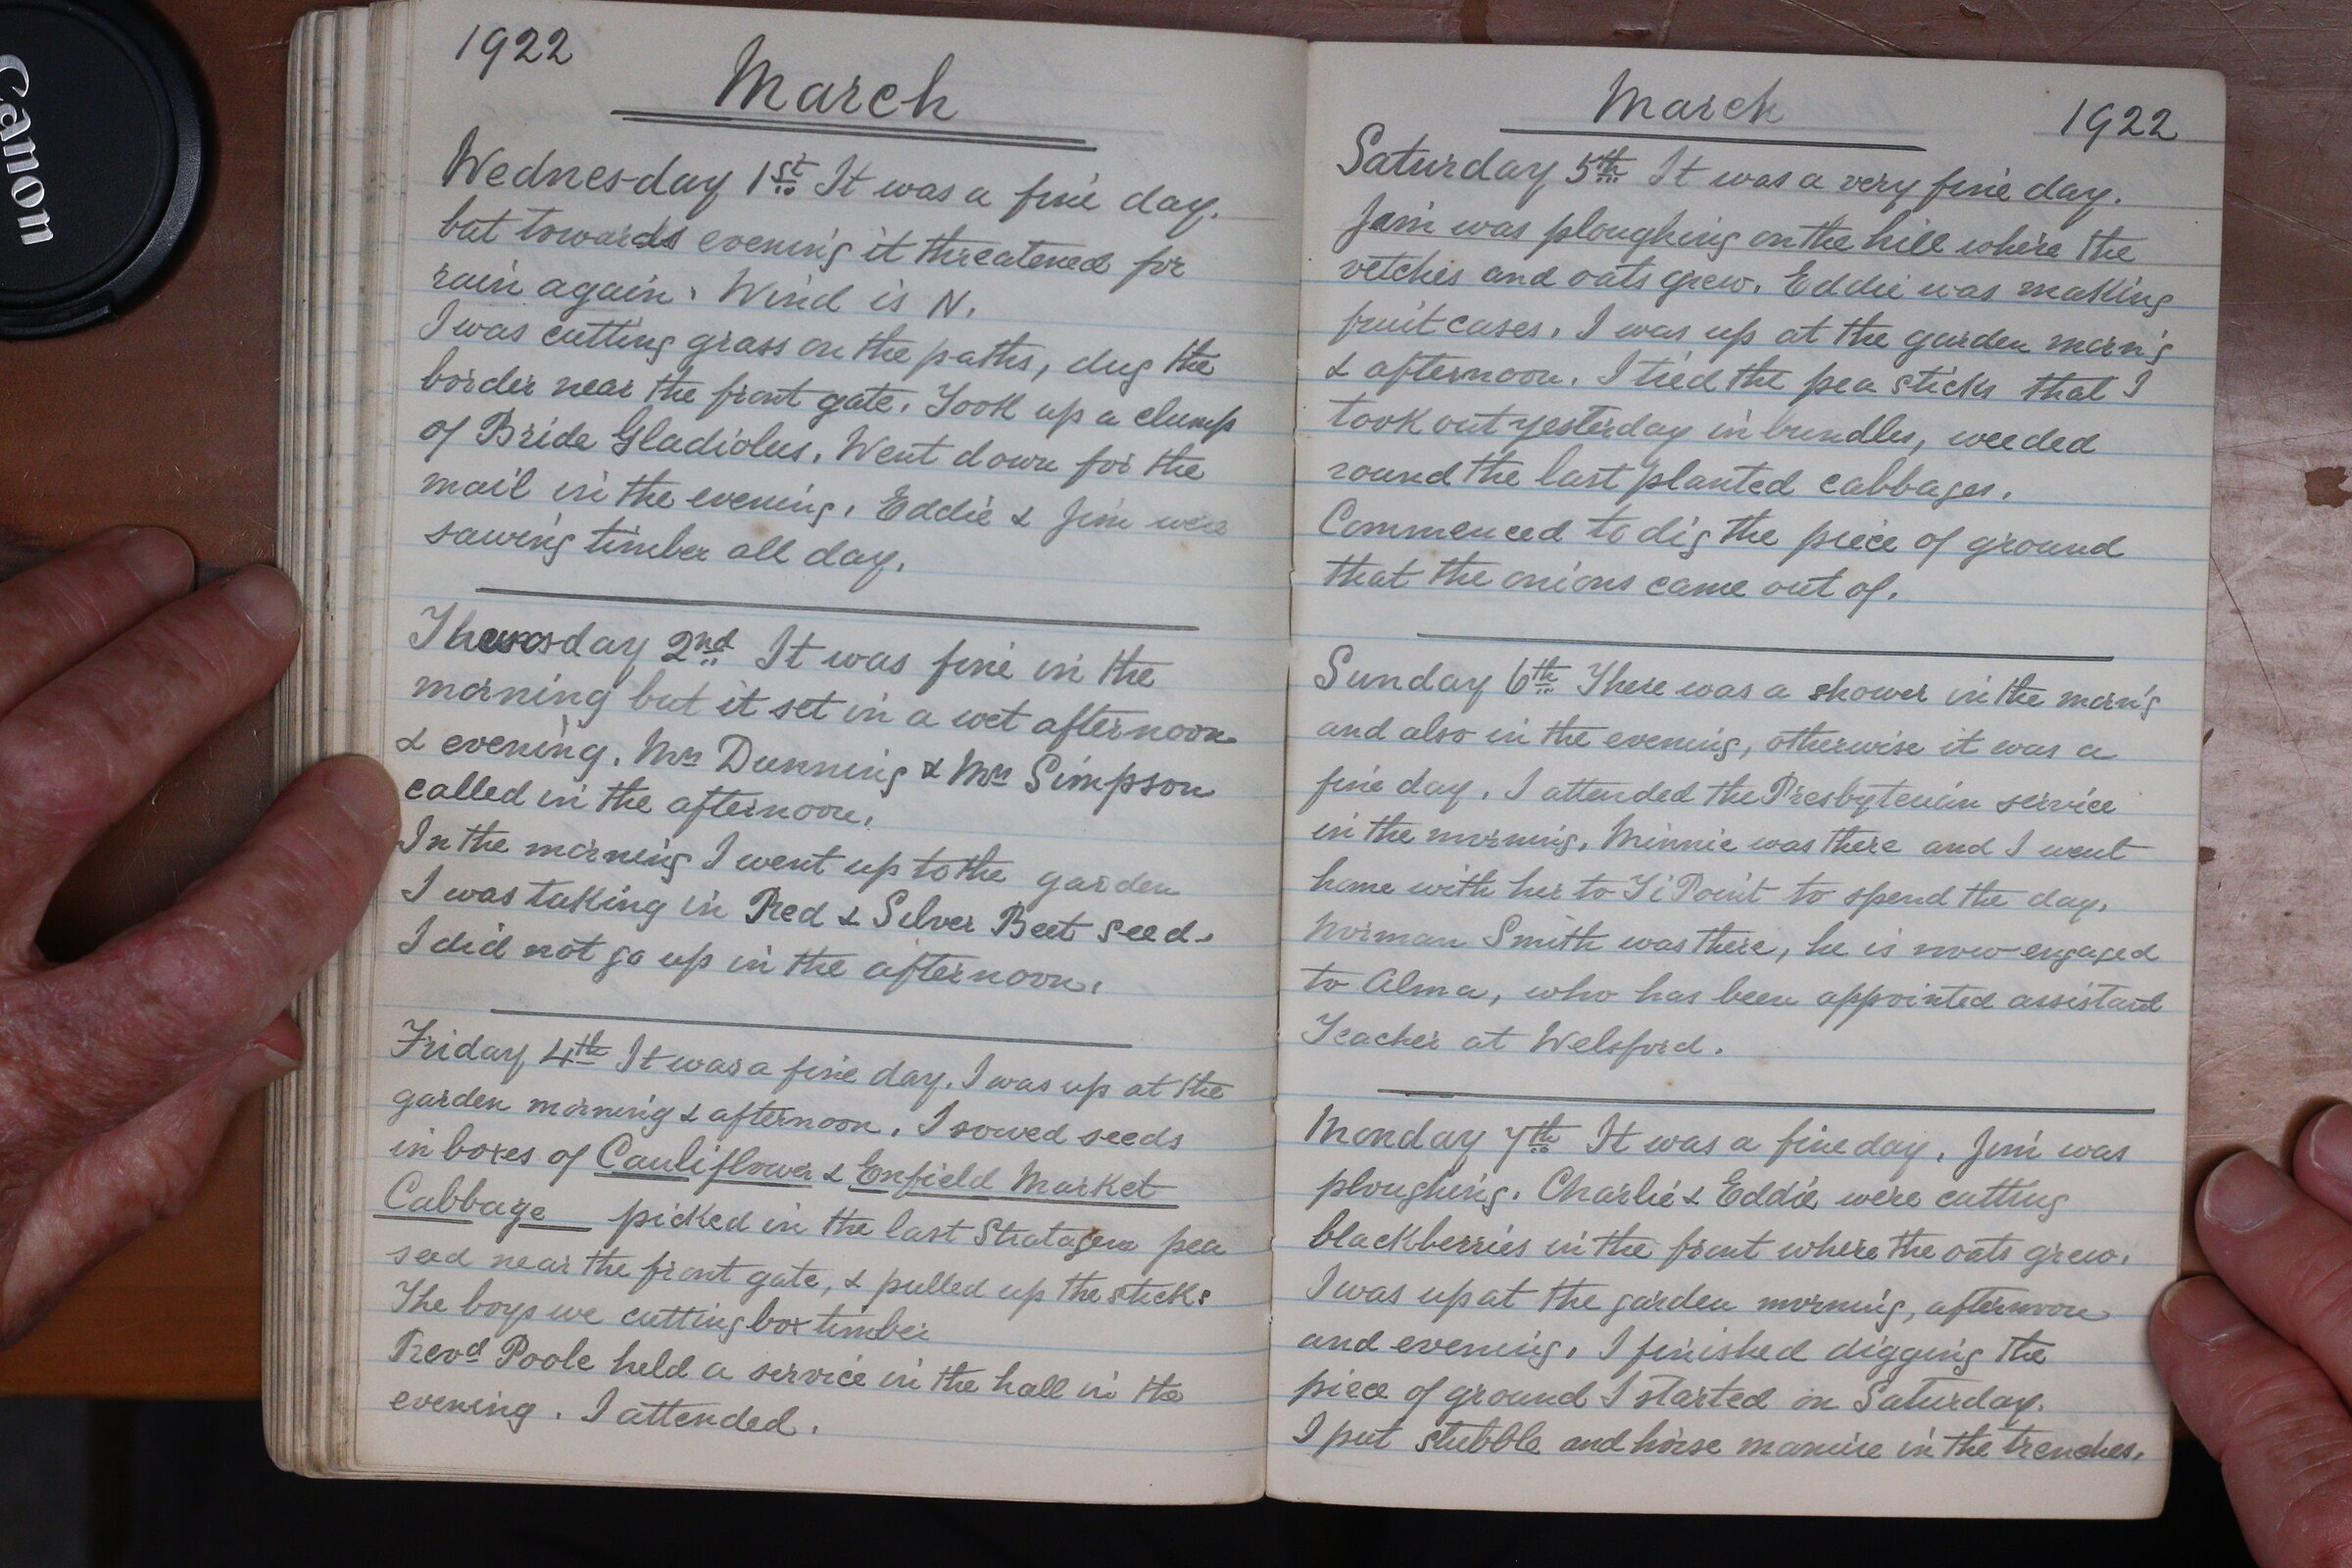 Canon
1922
March
Wednesday 1st It was a fine day.
but towards evening it threatened for
rain again. Wind is N.
I was cutting grass on the paths, dug the
border near the front gate. Took up a clump
of Bride Gladiolus. Went down for the
mail in the evening. Eddie & Jim were
sawing timber all day.
Thursday 2nd It was fine in the
morning but it set in a wet afternoon
& evening. Mrs Dunning & Mrs Simpson
called in the afternoon.
In the morning I went up to the garden
I was taking in Red & Silver Beet seed.
I did not go up in the afternoon.
Friday 4th It was a fine day. I was up at the
garden morning & afternoon. I sowed seeds
in boxes of Cauliflower & Enfield Market
Cabbage picked in the last Stratagem pea
seed near the front gate, & pulled up the sticks
The boys we cutting box timber
Revd Poole held a service in the hall in the
evening. I attended.
March
1922
Saturday 5th It was a very fine day.
Jim was ploughing on the hill where the
vetches and oats grew. Eddie was making
fruit cases. I was up at the garden morn'g
& afternoon. I tied the pea sticks that I
took out yesterday in bundles, weeded
round the last planted cabbages.
Commenced to dig the piece of ground
that the onions came out of.
Sunday 6th There was a shower in the morn'g
and also in the evening, otherwise it was a
fine day. I attended the Presbyterian service
in the morning. Minnie was there and I went
home with her to Ti Point to spend the day.
Norman Smith was there, he is now engaged
to Alma, who has been appointed assistant
Teacher at Welsford.
Monday 7th It was a fine day. Jim was
ploughing. Charlie & Eddie were cutting
blackberries in the front where the oats grew.
I was up at the garden morning, afternoon
and evening. I finished digging the
piece of ground I started on Saturday.
I put stubble and horse manure in the trenches.